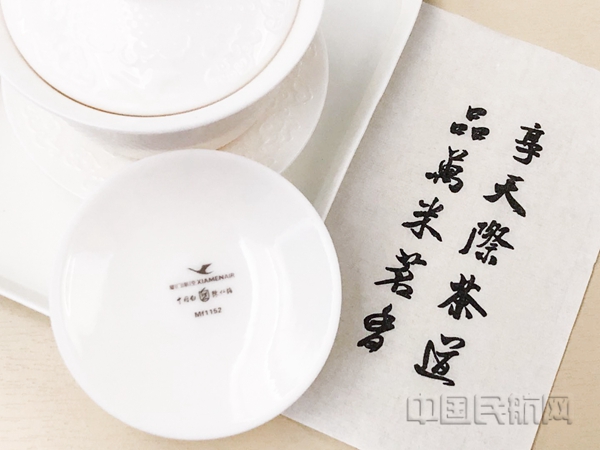 享天際茶道
品萬米茗香
XIAMENAIR
Mf1152
中国民航网